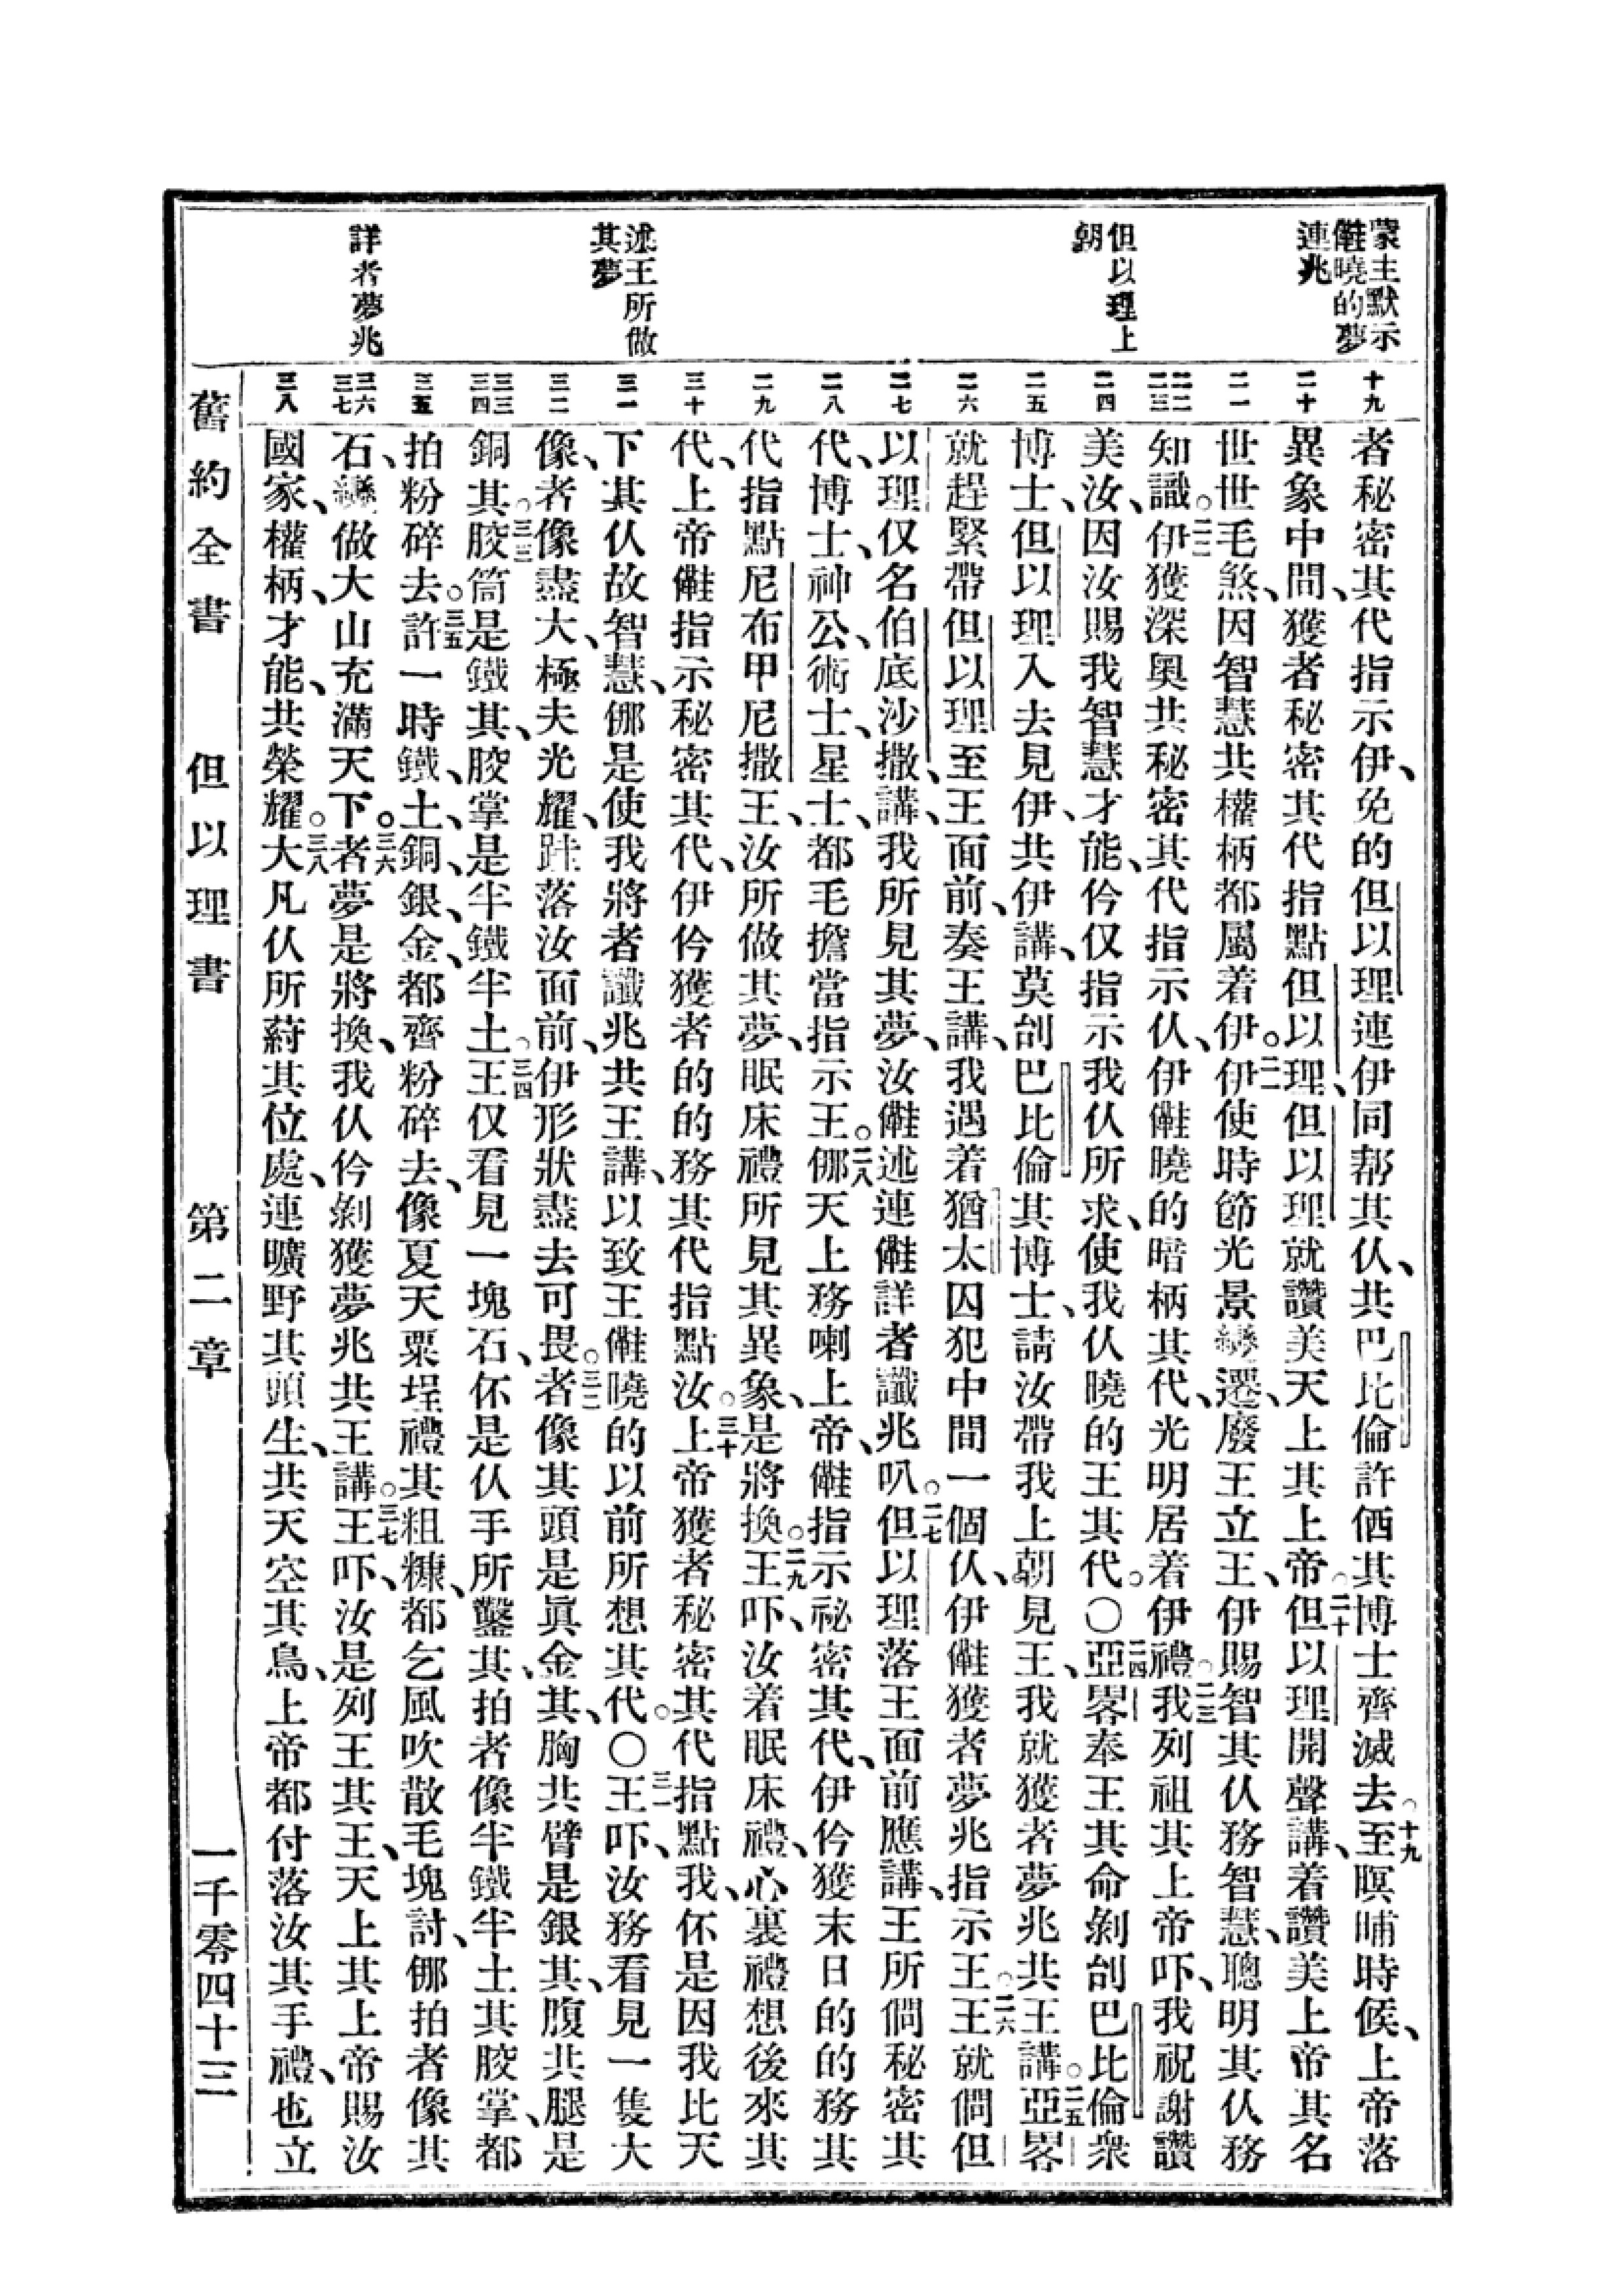 蒙主默示
僅曉的夢
連兆
但以理上
朝
述王所做
其夢
詳者夢兆
十九
二十
二一
二二
二三
二四
二五
二六
二七
二八
二九
三十
三一
三二
三三
三四
三五
三六
三七
三八
者秘密其代指示伊、免的但以理連伊同帮其仈、共巴比倫許㑚其博士齊滅去。十九至暝晡時候、上帝落
異象中間、獲者秘密其代指點但以理、但以理就讚美天上其上帝。二十但以理開聲講、着讚美上帝其名
世世毛煞、因智慧共權柄都屬着伊。二一伊使時節光景變遷、廢王立王、伊賜智其仈務智慧、聰明其仈務
知識。二二伊獲深奥共秘密其代指示仈、伊㒕曉的暗柄其代、光明居着伊禮。二三我列祖其上帝吓、我祝謝讚
美汝、因汝賜我智慧才能、伱仅指示我仈所求、使我仈曉的王其代。〇二四亞畧奉王其命剝刣巴比倫衆
博士、但以理入去見伊、共伊講、莫刣巴比倫其博士、請汝帶我上朝見王、我就獲者夢兆共王講。二五亞畧
就趕緊帶但以理至王面前、奏王講、我遇着猶太囚犯中間一個仈、伊㒕獲者夢兆指示王。二六王就倜但
以理仅名伯底沙撒、講、我所見其夢、汝㒕述連㒕詳者讖兆叭。二七但以理落王面前應講、王所倜秘密其
代、博士、神公、術士、星士、都毛擔當指示王。二八㑚天上務喇上帝、㒕指示祕密其代、伊伱獲末日的的務其
代、指點尼布甲尼撒王、汝所做其夢、眠床禮所見其異象、是將換。二九王吓、汝着眠床禮、心裏禮想後來其
代、上帝㒕指示秘密其代、伊伱獲者的的務其代指點汝。三十上帝獲者秘密其代指點我、伓是因我比天
下其仈故智慧、㑚是使我將者讖兆共王講、以致王㒕曉的以前所想其代。〇三一王吓、汝務看見一隻大
像、者像盡大、極夫光耀、跬落汝面前、伊形狀盡去可畏。三二者像其頭是眞金其、胸共臂是銀其、腹共腿是
銅其。三三胶筒是鐵其、胶掌是半鐵半土。三四王仅看見一塊石、伓是仈手所鑿其、拍者像半鐵半土其胶掌、都
拍粉碎去。三五許一時鐵、土、銅、銀、金、都齊粉碎去、像夏天粟埕禮其粗糠、都乞風吹散毛塊討、㑚拍者像其
石、變做大山充滿天下。三六者夢是將換、我仈伱剝獲夢兆共王講。三七王吓、汝是列王其王、天上其上帝賜汝
國家、權柄、才能、共榮耀。三八大凡仈所蒔其位處、連曠野其頭生、共天空其鳥、上帝都付落汝其手禮、也立
舊約全書　但以理書　第二章　一千零四十三